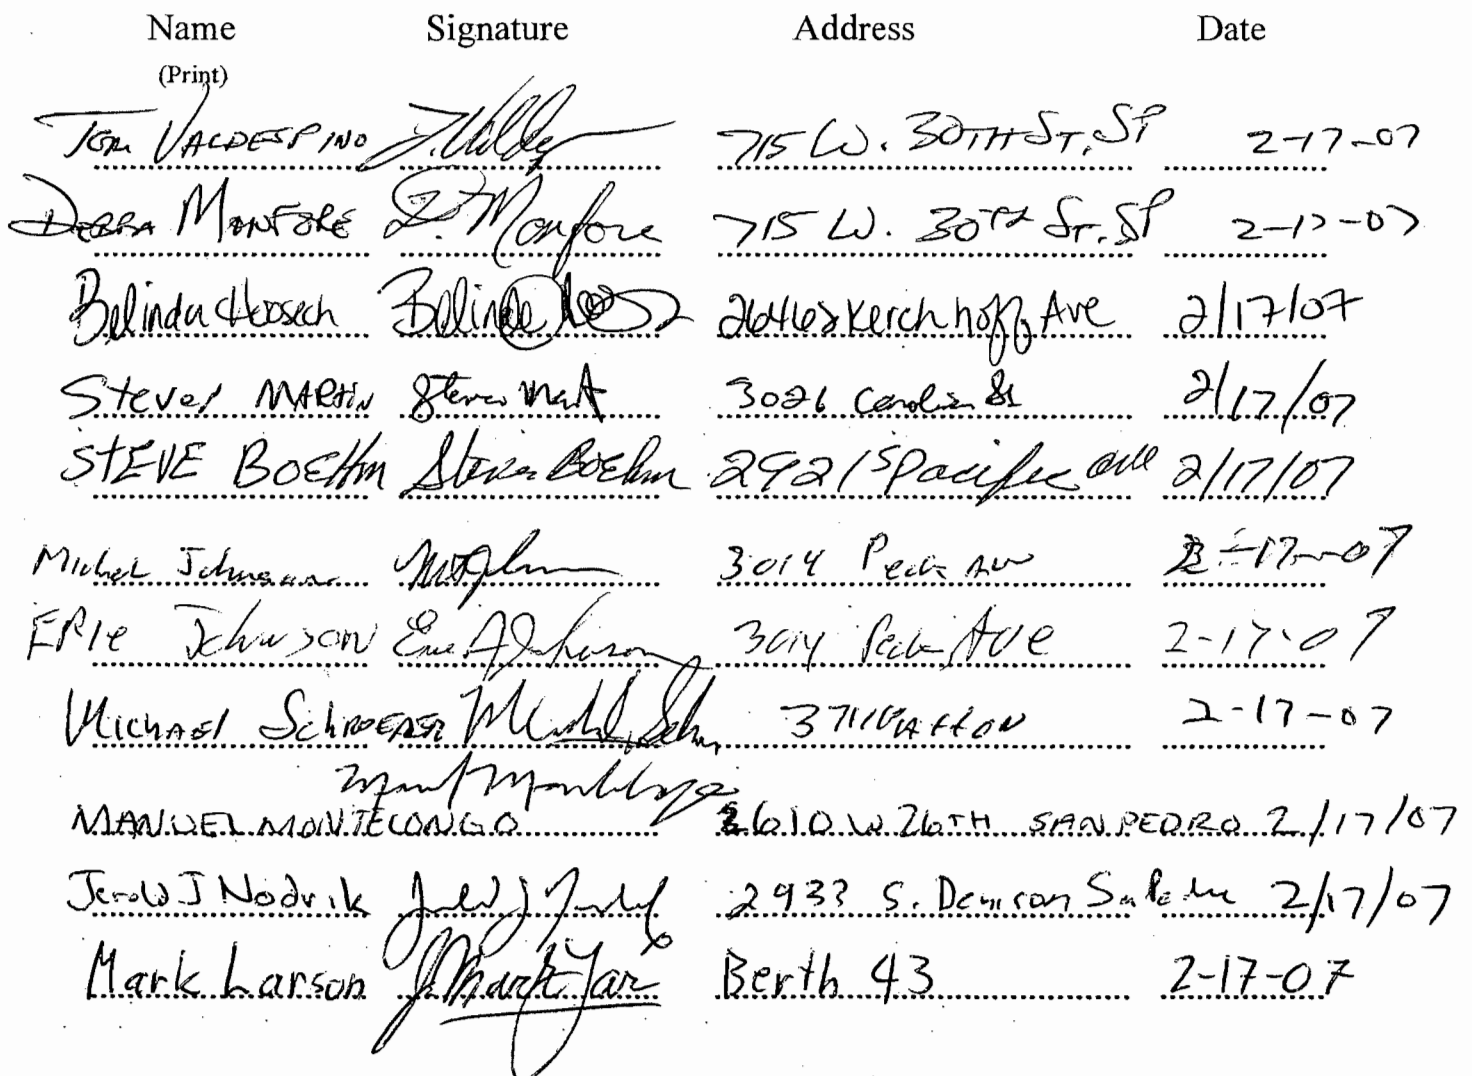 Name Signature Address Date
(Print)
Tom VALDESPINO T. Valdes 715 W. 30TH ST, SP 2-17-07
DEBRA MONFORE D. Monfore 715 W. 30TH ST. SP 2-17-07
Belinda Belinda 26462 Kerchhoff Ave 2/17/07
Steven MARTIN Steven Mart 3026 Carolina St 2/17/07
STEVE BOEHm Steven BOEhm 2921 S Pacific ave 2/17/07
Michel Johnson 3014 Peck Av 2-17-07
ERIC JohNSON Eric A Johnson 3014 Peck AVE 2-17-07
MICHAEL SchROEDER Michael 3711 PATTON 2-17-07
MANUEL MONTELONGO 610 W 26TH SAN PEDRO 2/17/07
Jerold J Nodvik Jerold J 2933 S. Denison San Pedro 2/17/07
Mark Larson J. Mark Lar Berth 43 2-17-07